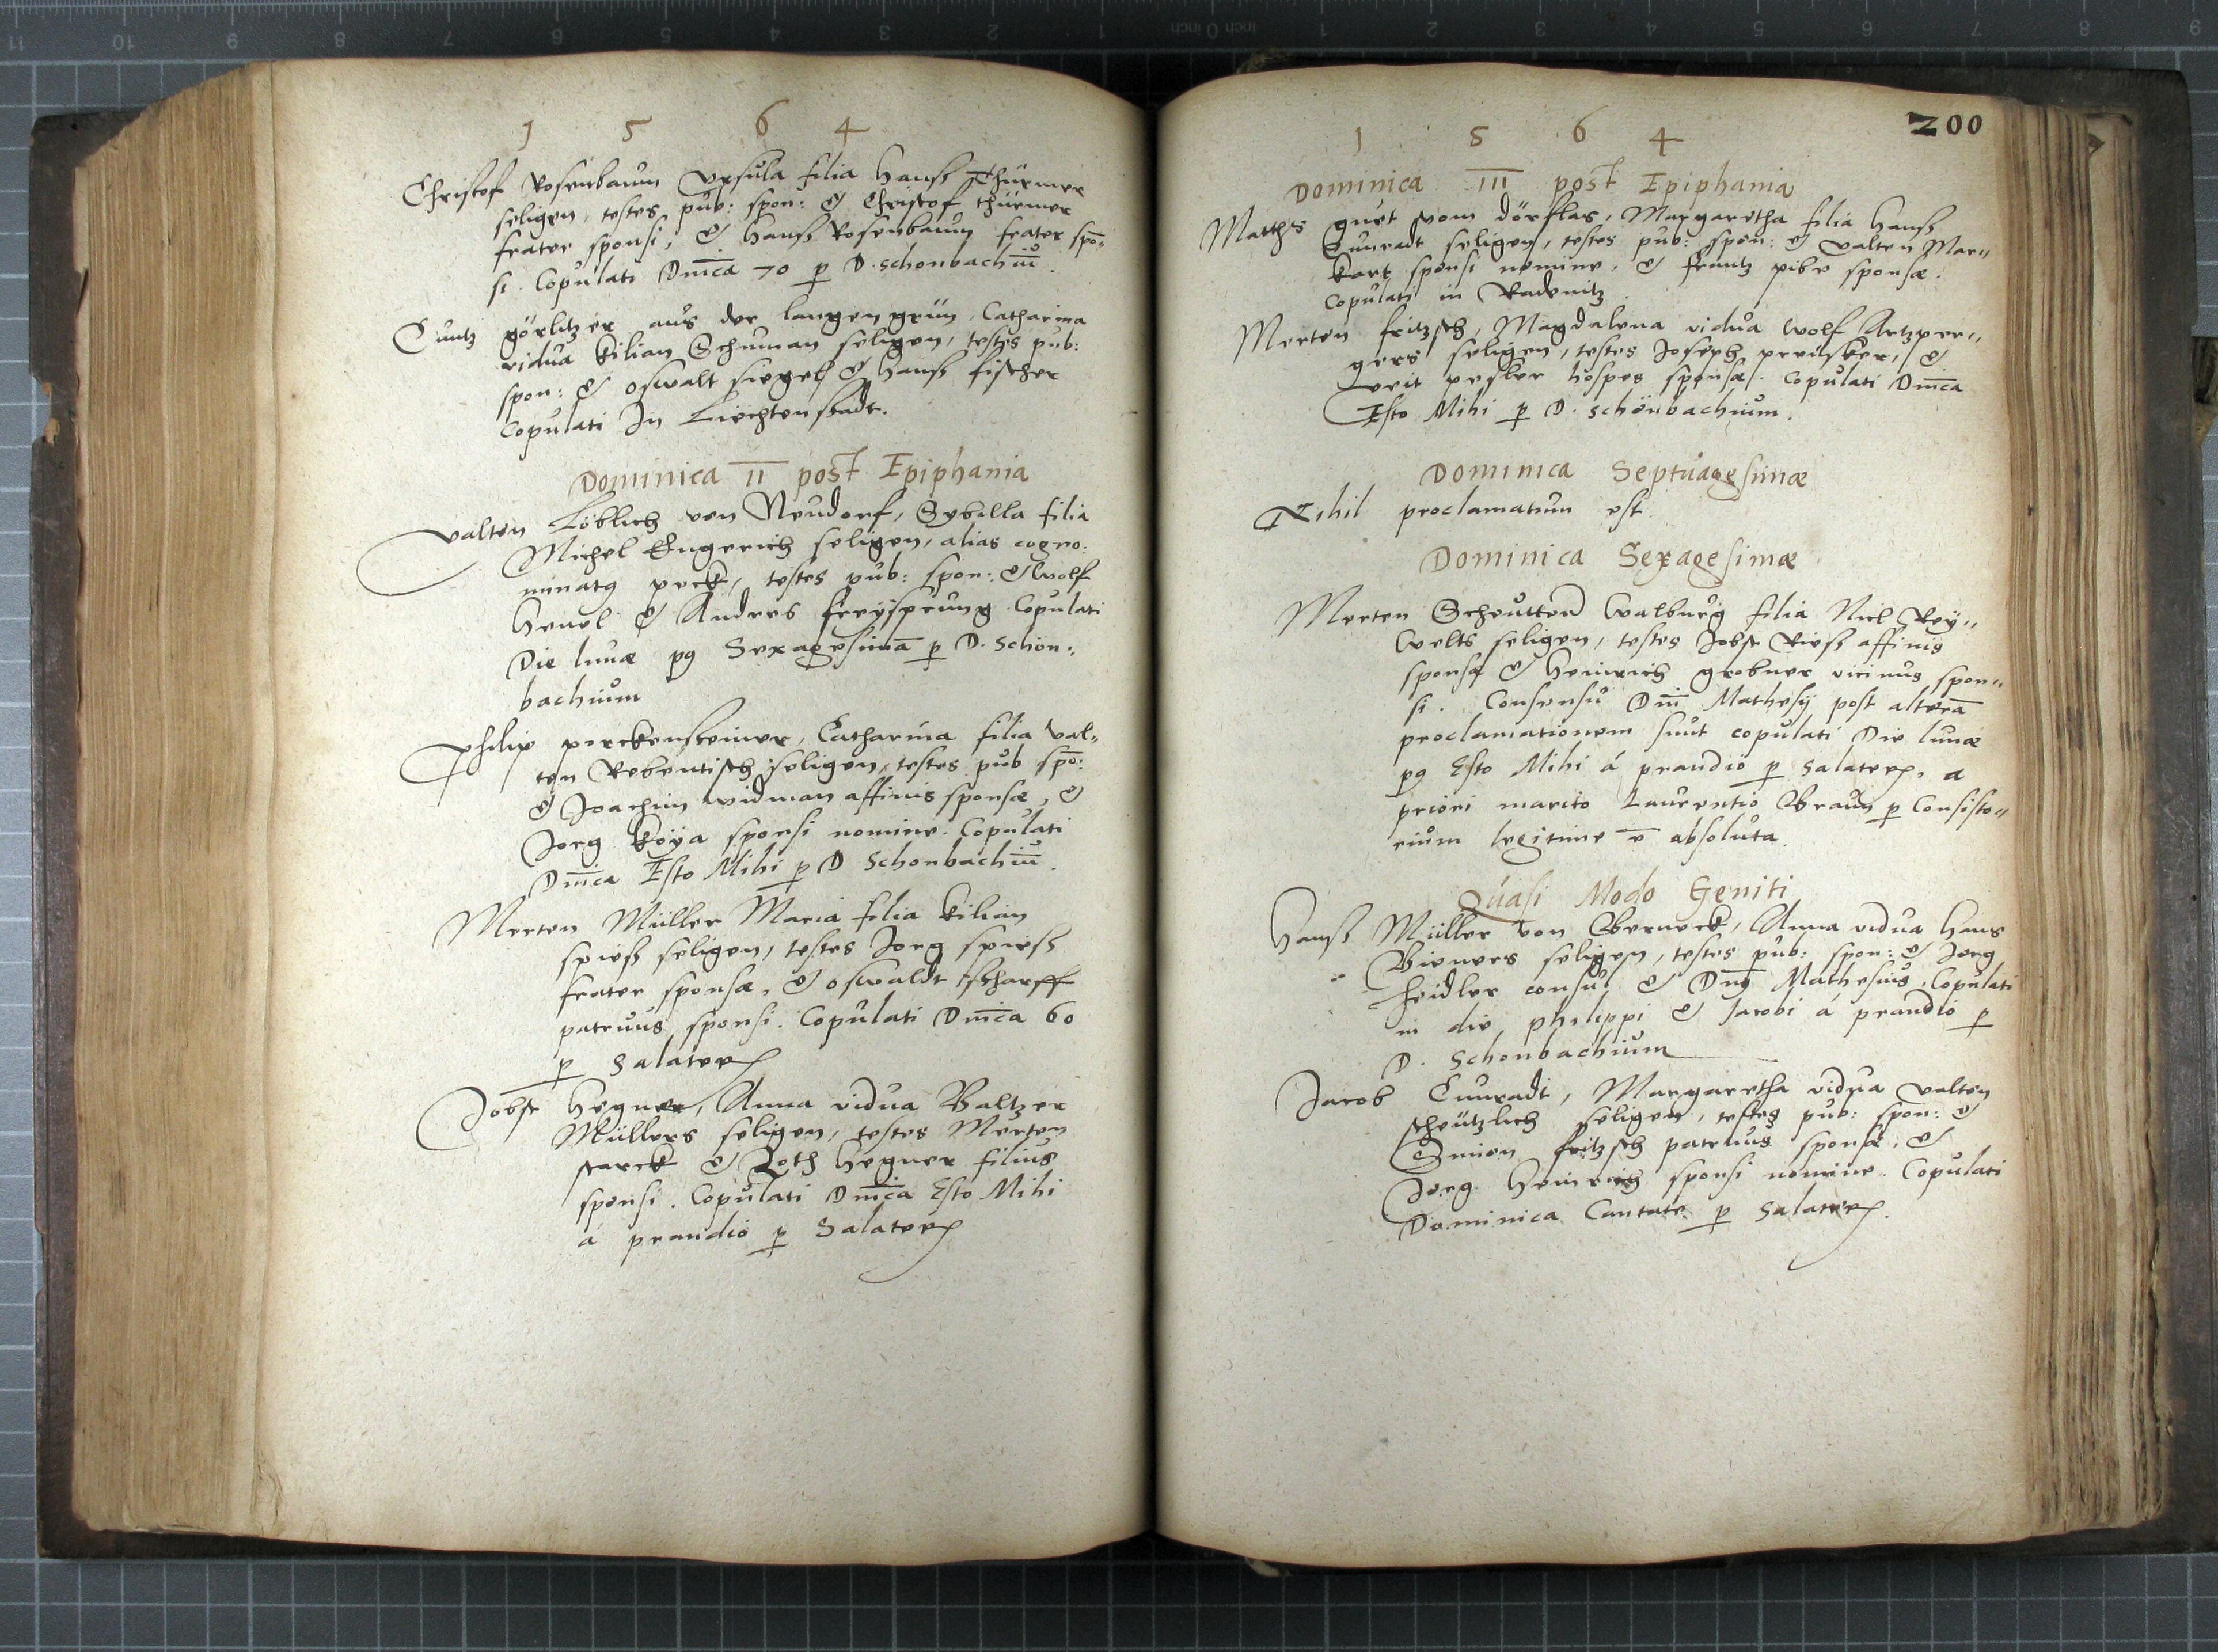 1 5 6 4
Christof Rosenbaum Ursula filia Hanß Thürmer
seligen, testes pub: spon: & Christof thürmer
frater sponsi, & Hanß Rosenbaum frater spō-
si. Copulati Dnica 70 p D. Schonbachiū.
Cuntz görlitzer aus der langengrün, Catharina
vidua Kilian Schuman seligen, testes pub:
spon: & oswalt siegel & Hanß fischer
Copulati In Liechtenstadt.
Dominica II post Epiphania
Valten Löblich von Neudorf, Sybilla filia
Michel Engerich seligen, alias cogno:
minatq peck, testes pub: spon: & Wolf
Henel & Andres freysprung Copulati
Die lunæ pq Sexagesimā p D. Schön:
bachium
Philip perckensteiner, Catharina filia Val-
ten Rebentisch seligen, testes pub spō:
& Joachim widman affinis sponsæ, &
Jorg Köya sponsi nomine. Copulati
Dnica Esto Mihi p D Schonbachiū.
Merten Müller Maria filia Kilian
spieß seligen, testes Jorg spieß
frater sponsæ, & oswaldt scharff
patruus sponsi. Copulati Dnica 60
p Salater
Jobst Hegner, Anna vidua Baltzer
Müllers seligen, testes Merten
starck & Loth Hegner filius
sponsi. Copulati Dnica Esto Mihi
á prandio p Salater
200
1 5 6 4
Dominica III post Epiphania
Mathes gust vom dörflas, Margaretha filia Hanß
Cunradt seligen, testes pub: spon: & Valten Mar-
kart sponsi nomine, & frantz pibr sponsæ.
Copulati in Radenitz.
Merten fritzsch, Magdalena vidua Wolf Artzper-
gers seligen, testes Joseph preüsker, &
Veit pesler hospes sponsæ. Copulati Dnica
Esto Mihi p D. Schönbachium.
Dominica Septuagesimæ
Nihil proclamatum est.
Dominica Sexagesimæ
Merten Scheutter Walburg filia Nicl Rey-
welts seligen, testes Jobst Rieß affinis
sponsæ & Heinrich grobner vicinus spon-
si. Consensu Dni Mathesij post alterā
proclamationem sunt copulati Die lunæ
pq Esto Mihi á prandio p Salater, a
priori marito Laurentio Braun p Consisto-
rium legitime ē absoluta.
Quasi Modo Geniti
Hanß Müller von Berneck, Anna vidua Hans
Bieners seligen, testes pub: spon: & Jorg
heidler consul & Dnq Mathesius, Copulati
in die philippi & Jacobi á prandio p
D. Schonbachium
Jacob Cunradt, Margaretha vidua Valten
scheützlich seligen, testes pub: spon: &
Simon fritzsch patruus sponsæ, &
Jorg Heinrich sponsi nomine. Copulati
Dominica Cantate p Salater.